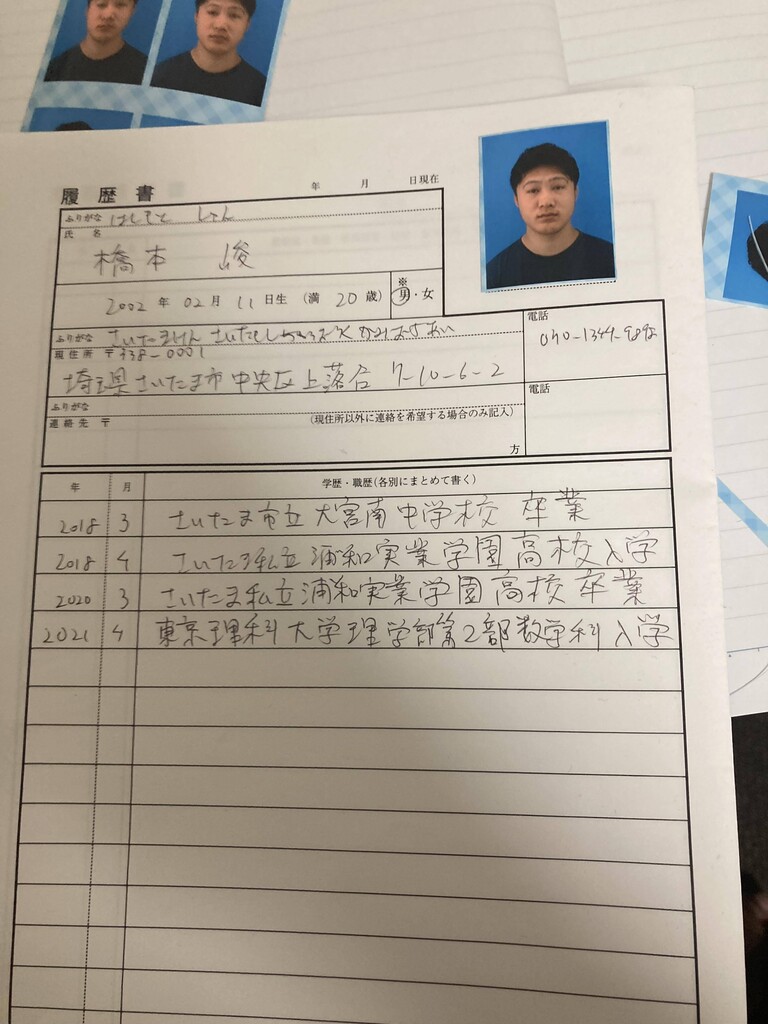 履歴書
年 月 日現在
ふりがな はしもと しゅん
氏 名
橋本 峻
2002 年 02 月 11 日生 (満 20 歳) ※ 男・女
ふりがな さいたまけん さいたましちゅうおうく かみおちあい
電話
現住所 〒338-0001
埼玉県さいたま市中央区上落合 7-10-6-2
ふりがな
電話
連絡先 〒 (現住所以外に連絡を希望する場合のみ記入)
方
年 月 学歴・職歴(各別にまとめて書く)
2018 3 さいたま市立大宮南中学校 卒業
2018 4 さいたま私立浦和実業学園高校入学
2020 3 さいたま私立浦和実業学園高校卒業
2021 4 東京理科大学理学部第2部数学科入学